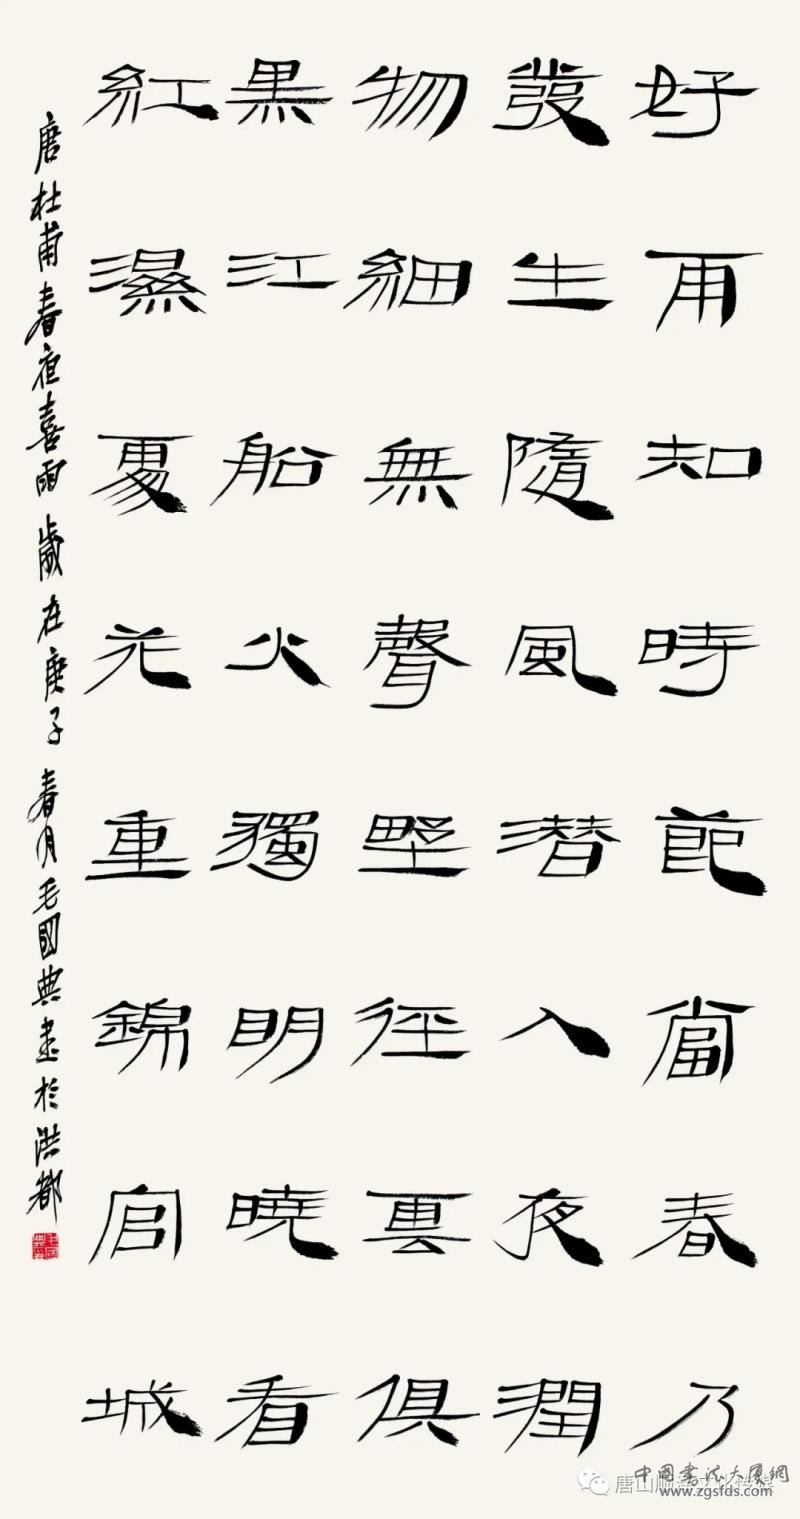 好雨知時節當春乃
發生隨風潜入夜潤
物細無聲野徑雲俱
黑江船火獨明曉看
紅濕處花重錦官城
唐杜甫春夜喜雨 歲在庚子 春月毛國典書於洪都
中国書法大厦網
www.zgsfds.net
唐山